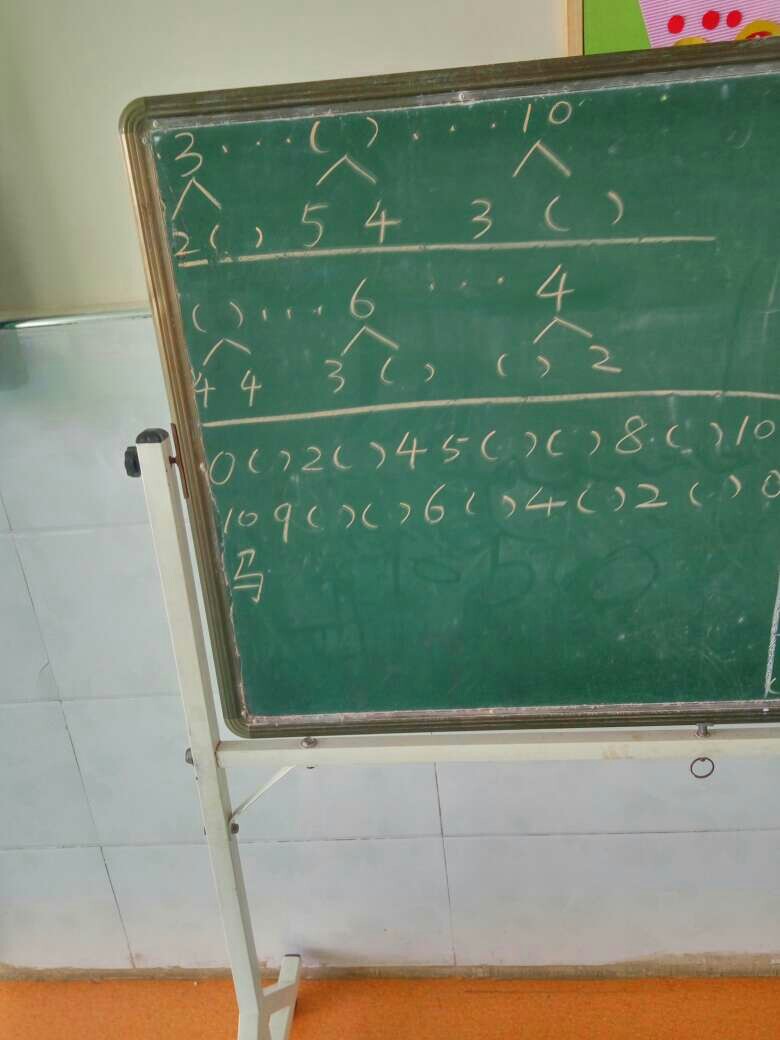 3...( )...10
2( ) 5 4 3 ( )
( )...6 ...4
4 4 3 ( ) ( ) 2
0( )2( )45( )( )8( )10
109( )( )6( )4( )2( )0
马